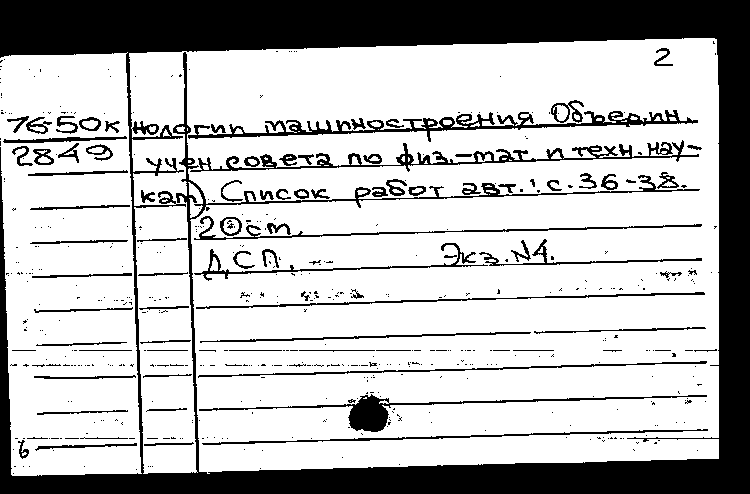 2
76-50к нологии машиностроения Объедин.
2849 учен. совета по физ.-мат. и техн. нау-
кам). Список работ авт.: с. 36-38.
20ст.
ДСП. - Экз. N4.
6